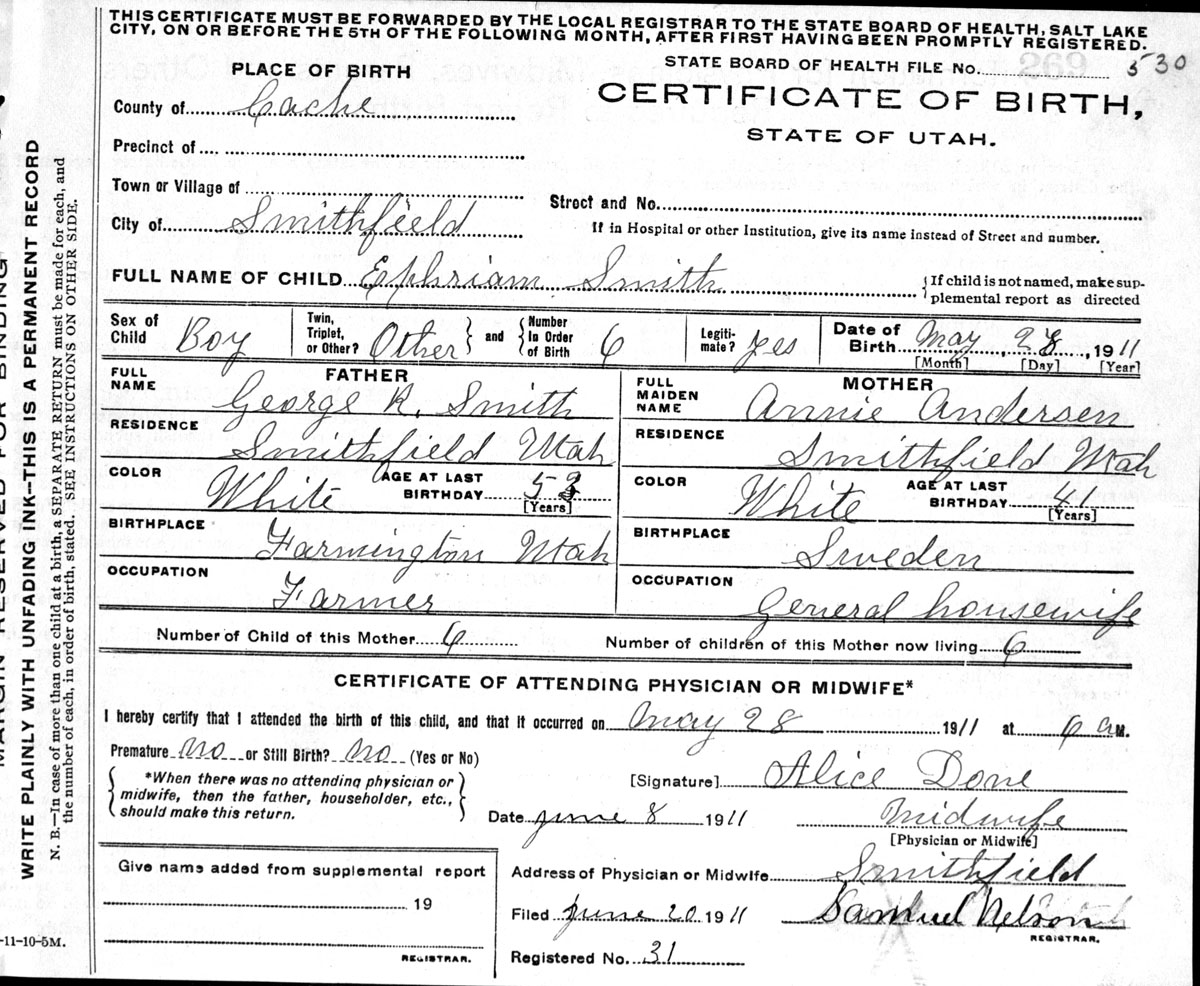 THIS CERTIFICATE MUST BE FORWARDED BY THE LOCAL REGISTRAR TO THE STATE BOARD OF HEALTH, SALT LAKE
CITY, ON OR BEFORE THE 5TH OF THE FOLLOWING MONTH, AFTER FIRST HAVING BEEN PROMPTLY REGISTERED.
PLACE OF BIRTH
STATE BOARD OF HEALTH FILE No. 530
County of Cache
CERTIFICATE OF BIRTH,
STATE OF UTAH.
Precinct of
Town or Village of
Street and No.
City of Smithfield
If in Hospital or other Institution, give its name instead of Street and number.
FULL NAME OF CHILD Ephriam Smith
If child is not named, make sup-
plemental report as directed
Sex of Child Boy
Twin, Triplet, or Other? Other and Number in Order of Birth 6
Legiti-mate? yes
Date of Birth May, 28, 1911
[Month] [Day] [Year]
FATHER
FULL NAME George R. Smith
RESIDENCE Smithfield Utah
COLOR White AGE AT LAST BIRTHDAY 53
[Years]
BIRTHPLACE Farmington Utah
OCCUPATION Farmer
MOTHER
FULL MAIDEN NAME Annie Andersen
RESIDENCE Smithfield Utah
COLOR White AGE AT LAST BIRTHDAY 41
[Years]
BIRTHPLACE Sweden
OCCUPATION General housewife
Number of Child of this Mother 6 Number of children of this Mother now living 6
CERTIFICATE OF ATTENDING PHYSICIAN OR MIDWIFE*
I hereby certify that I attended the birth of this child, and that it occurred on May 28 1911 at 6 a M.
Premature No or Still Birth? No (Yes or No)
*When there was no attending physician or
midwife, then the father, householder, etc.,
should make this return.
[Signature] Alice Done
Date June 8 1911 Midwife
[Physician or Midwife]
Give name added from supplemental report
19
REGISTRAR.
Address of Physician or Midwife Smithfield
Filed June 20 1911 Samuel Nelson
REGISTRAR.
Registered No. 31
-11-10-5M.
MARGIN RESERVED FOR BINDING
WRITE PLAINLY WITH UNFADING INK—THIS IS A PERMANENT RECORD
N. B.—In case of more than one child at a birth, a SEPARATE RETURN must be made for each, and
the number of each, in order of birth, stated. SEE INSTRUCTIONS ON OTHER SIDE.